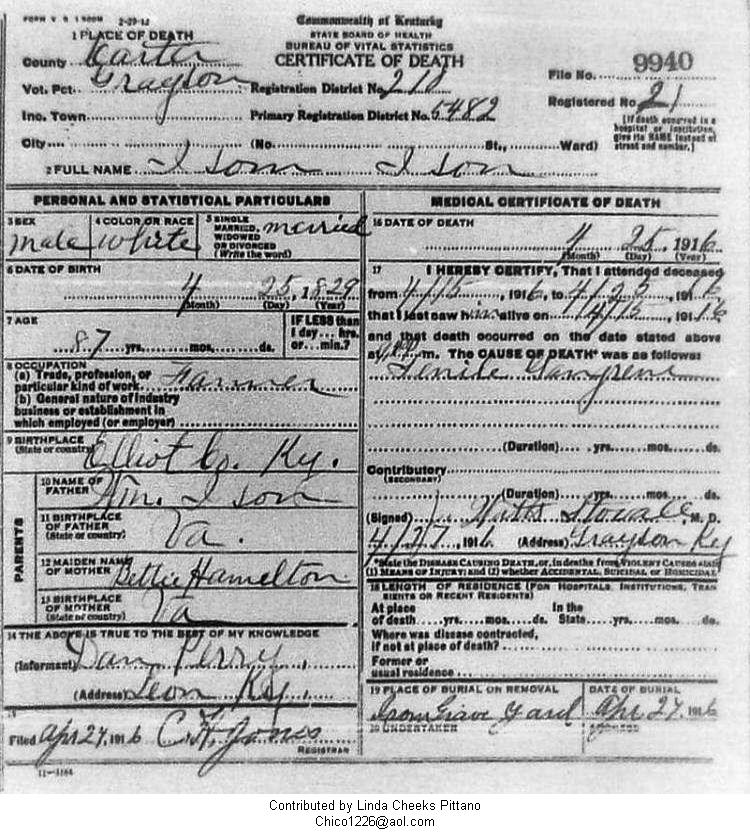 FORM V. S. 1 2-29-12
Commonwealth of Kentucky
STATE BOARD OF HEALTH
BUREAU OF VITAL STATISTICS
CERTIFICATE OF DEATH
1 PLACE OF DEATH
County Carter
Vot. Pct. Grayson Registration District No. 210
File No. 9940
Inc. Town Primary Registration District No. 5482
Registered No. 21
City (No. St., Ward)
[If death occurred in a hospital or institution, give its NAME instead of street and number.]
2 FULL NAME Isom Ison
PERSONAL AND STATISTICAL PARTICULARS
3 SEX Male
4 COLOR OR RACE White
5 SINGLE MARRIED, WIDOWED OR DIVORCED (Write the word) married
6 DATE OF BIRTH
4 25, 1829
(Month) (Day) (Year)
7 AGE
87 yrs. mos. ds.
IF LESS than 1 day... hrs. or... min.?
8 OCCUPATION
(a) Trade, profession, or particular kind of work Farmer
(b) General nature of industry
business or establishment in
which employed (or employer)
9 BIRTHPLACE
(State or country) Elliot Co. Ky.
PARENTS
10 NAME OF FATHER Wm. Ison
11 BIRTHPLACE OF FATHER (State or country) Va.
12 MAIDEN NAME OF MOTHER Bettie Hamelton
13 BIRTHPLACE OF MOTHER (State or country) Va
14 THE ABOVE IS TRUE TO THE BEST OF MY KNOWLEDGE
(Informant) Dan Perry
(Address) Leon Ky
15
Filed Apr 27, 1916 Jones
REGISTRAR
11-3184
MEDICAL CERTIFICATE OF DEATH
16 DATE OF DEATH
4 25 1916
(Month) (Day) (Year)
17 I HEREBY CERTIFY, That I attended deceased
from 4/15, 1916, to 4/25, 1916
that I last saw him alive on 1916
and that death occurred on the date stated above
at m. The CAUSE OF DEATH* was as follows:
Senile Gangrene
(Duration) yrs. mos. ds.
Contributory
(SECONDARY)
(Duration) yrs. mos. ds.
(Signed) Stovall, M. D.
4/27, 1916 (Address) Grayson Ky
*State the DISEASE CAUSING DEATH, or, in deaths from VIOLENT CAUSES state
(1) MEANS OF INJURY; and (2) whether ACCIDENTAL, SUICIDAL or HOMICIDAL.
18 LENGTH OF RESIDENCE (FOR HOSPITALS, INSTITUTIONS, TRANSIENTS OR RECENT RESIDENTS)
At place of death yrs. mos. ds. In the State yrs. mos. ds.
Where was disease contracted,
if not at place of death?
Former or
usual residence
19 PLACE OF BURIAL OR REMOVAL
Grave Yard
DATE OF BURIAL
Apr 27, 1916
20 UNDERTAKER
ADDRESS
Contributed by Linda Cheeks Pittano
Chico1226@aol.com